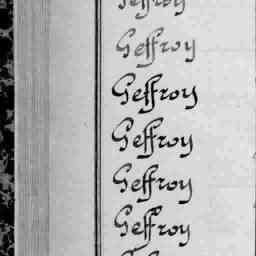 Geffroy
Geffroy
Geffroy
Geffroy
Geffroy
Geffroy